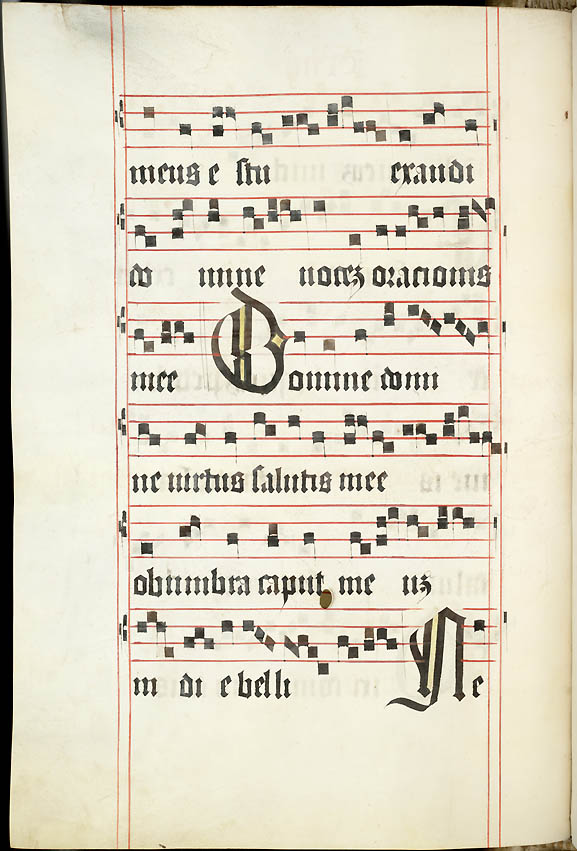 meus e stu exaudi
do mine uocez oracionis
mee Domine domi
ne uirtus salutis mee
obumbra caput me uz
in di e belli Ne